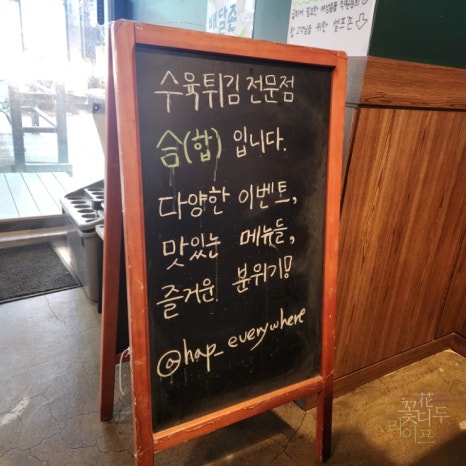 배달존
수육튀김 전문점
合(합) 입니다.
다양한 이벤트,
맛있는 메뉴들,
즐거운 분위기!
@hap_everywhere
꽃花
디두
라이프